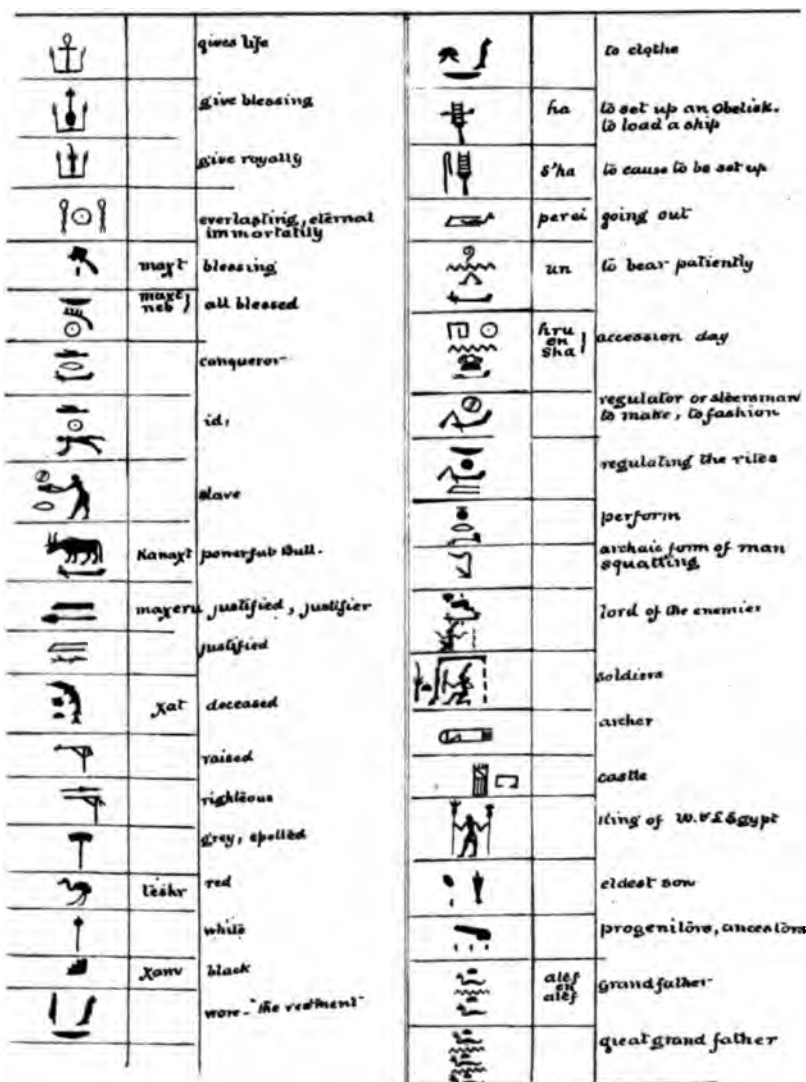 gives life
give blessing
give royally
everlasting, eternal
immortatily
maxt blessing
maxt }
neb } all blessed
conqueror
id,
slave
Kanaxt powerful Bull.
maxeru justified, justifier
justified
xat deceased
raised
righteous
grey, spelled
teshr red
white
xanv black
wore - "the vestment"
to clothe
ha to set up an Obelisk.
to load a ship
s'ha to cause to be set up
perei going out
un to bear patiently
hru
en
sha } accession day
regulator or steersman
to make, to fashion
regulating the rites
perform
archaic form of man
squatting
lord of the enemies
soldiers
archer
castle
King of W. & L Egypt
eldest son
progenitors, ancestors
atef
en
atef Grandfather
great grand father